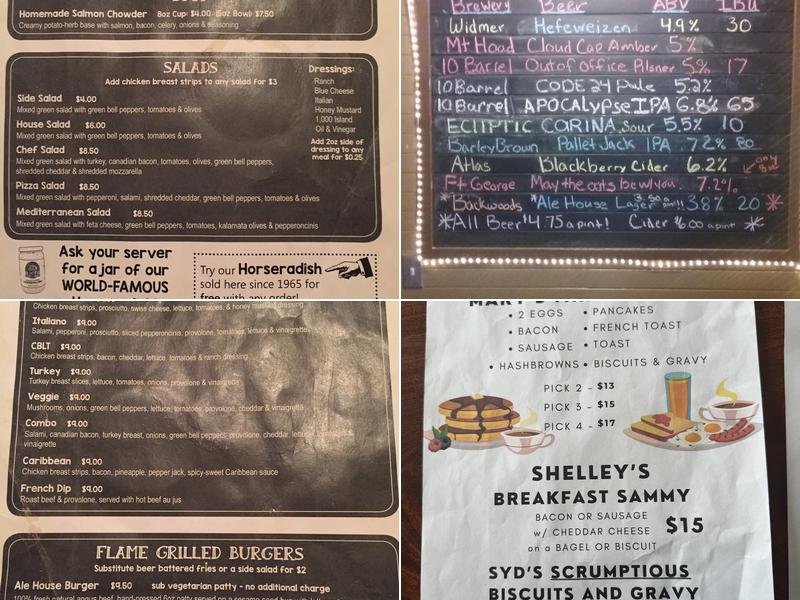 Homemade Salmon Chowder 8oz Cup $4.00 Bowl $7.50
Creamy potato-herb base with salmon, bacon, celery, onions & seasoning
SALADS
Add chicken breast strips to any salad for $3
Side Salad $4.00
Mixed green salad with green bell peppers, tomatoes & olives
House Salad $6.00
Mixed green salad with green bell peppers, tomatoes & olives
Chef Salad $8.50
Mixed green salad with turkey, canadian bacon, tomatoes, olives, green bell peppers,
shredded cheddar & shredded mozzarella
Pizza Salad $8.50
Mixed green salad with pepperoni, salami, shredded cheddar, green bell peppers, tomatoes & olives
Mediterranean Salad $8.50
Mixed green salad with feta cheese, green bell peppers, tomatoes, kalamata olives & pepperoncinis
Dressings:
Ranch
Blue Cheese
Italian
Honey Mustard
1,000 Island
Oil & Vinegar
Add 2oz side of
dressing to any
meal for $0.25
Ask your server
for a jar of our
WORLD-FAMOUS
Try our Horseradish
sold here since 1965 for
free with any order!
Brewery Beer ABV IBU
Widmer Hefeweizen 4.9% 30
Mt Hood Cloud Cap Amber 5%
10 Barrel Out of Office Pilsner 5% 17
10 Barrel CODE 24 Pale 5.2%
10 Barrel APOCALYPSE IPA 6.8% 65
ECLIPTIC CARINA Sour 5.5% 10
Barley Brown Pallet Jack IPA 7.2% 80
Atlas Blackberry Cider 6.2%
Ft George May the oats be w/ you. 7.2%
*Backwoods *Ale House Lager 3.8% 20 *
*All Beer $4.75 a pint! Cider $6.00 a pint *
Chicken breast strips, prosciutto, swiss cheese, lettuce, tomatoes, & honey mustard dressing
Italiano $9.00
Salami, pepperoni, prosciutto, sliced pepperoncinis, provolone, tomatoes, lettuce & vinaigrette
CBLT $9.00
Chicken breast strips, bacon, cheddar, lettuce, tomatoes & ranch dressing
Turkey $9.00
Turkey breast slices, lettuce, tomatoes, onions, provolone & vinaigrette
Veggie $9.00
Mushrooms, onions, green bell peppers, lettuce, tomatoes, provolone, cheddar & vinaigrette
Combo $9.00
Salami, canadian bacon, turkey breast, onions, green bell peppers, provolone, cheddar, lettuce,
vinaigrette
Caribbean $9.00
Chicken breast strips, bacon, pineapple, pepper jack, spicy-sweet Caribbean sauce
French Dip $9.00
Roast beef & provolone, served with hot beef au jus
FLAME GRILLED BURGERS
Substitute beer battered fries or a side salad for $2
Ale House Burger $9.50 sub vegetarian patty - no additional charge
• 2 EGGS • PANCAKES
• BACON • FRENCH TOAST
• SAUSAGE • TOAST
• HASHBROWNS • BISCUITS & GRAVY
PICK 2 - $13
PICK 3 - $15
PICK 4 - $17
SHELLEY'S
BREAKFAST SAMMY
BACON OR SAUSAGE
w/ CHEDDAR CHEESE $15
on a BAGEL OR BISCUIT
SYD'S SCRUMPTIOUS
BISCUITS AND GRAVY